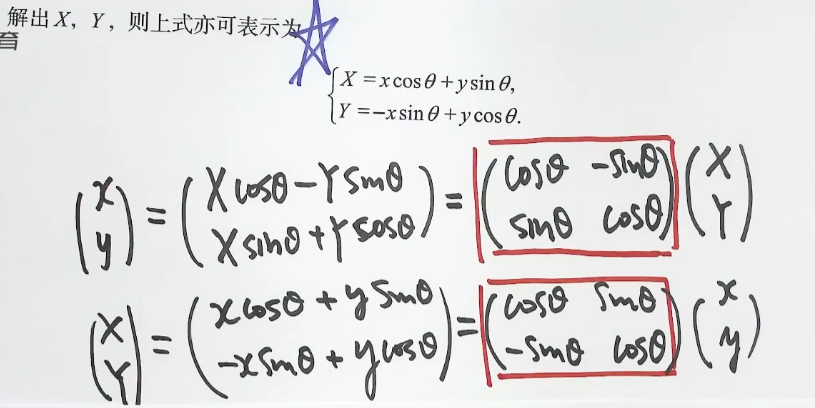 解出X，Y，则上式亦可表示为
育
{X=xcosθ+ysinθ,
Y=-xsinθ+ycosθ.
(x y) = (Xcosθ-Ysinθ Xsinθ+Ycosθ) = (cosθ -sinθ sinθ cosθ)(X Y)
(X Y) = (xcosθ+ysinθ -xsinθ+ycosθ) = (cosθ sinθ -sinθ cosθ)(x y)